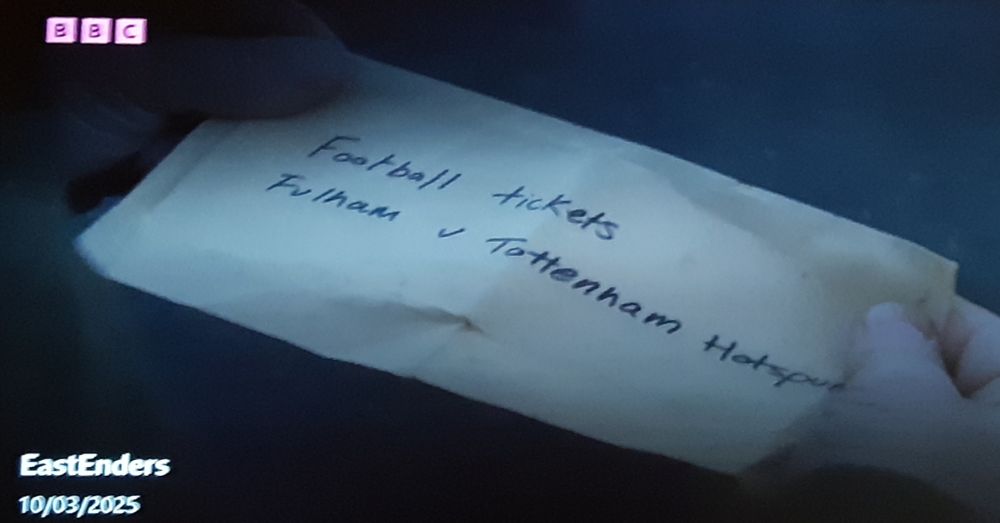 BBC
Football tickets
Fulham v Tottenham Hotspur
EastEnders
10/03/2025